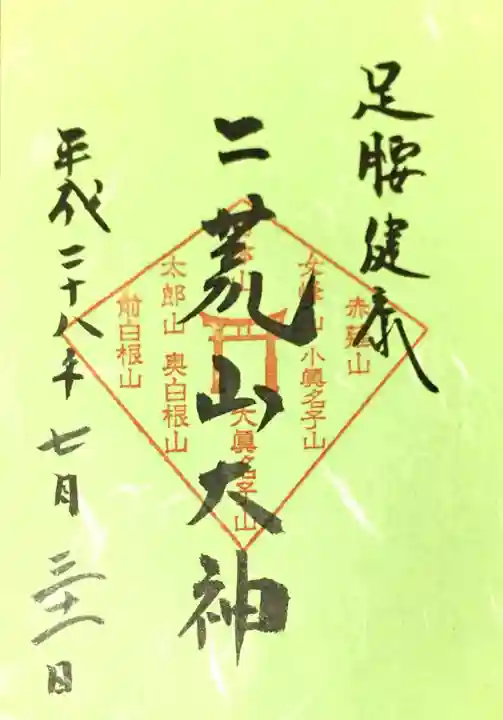 足腰健康
二荒山大神
平成二十八年七月三十一日
赤薙山
女峰山
小眞名子山
大眞名子山
太郎山
奥白根山
前白根山